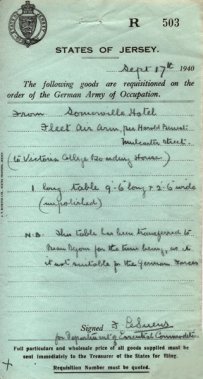 R 503
STATES OF JERSEY.
Sept 17th 1940
The following goods are requisitioned on the
order of the German Army of Occupation.
From Somerville Hotel
Fleet Air Arm, per Harold
Mulcaster Street.
(to Victoria College Boarding House)
1 long table 9-6 long x 3-6 wide
(unpolished)
N.B. This table has been transferred to
for the time being, as it
is not suitable for the German Forces
Signed
for Department of Essential Commodities
Full particulars and wholesale price of all goods supplied must be
sent immediately to the Treasurer of the States for filing.
Requisition Number must be quoted.